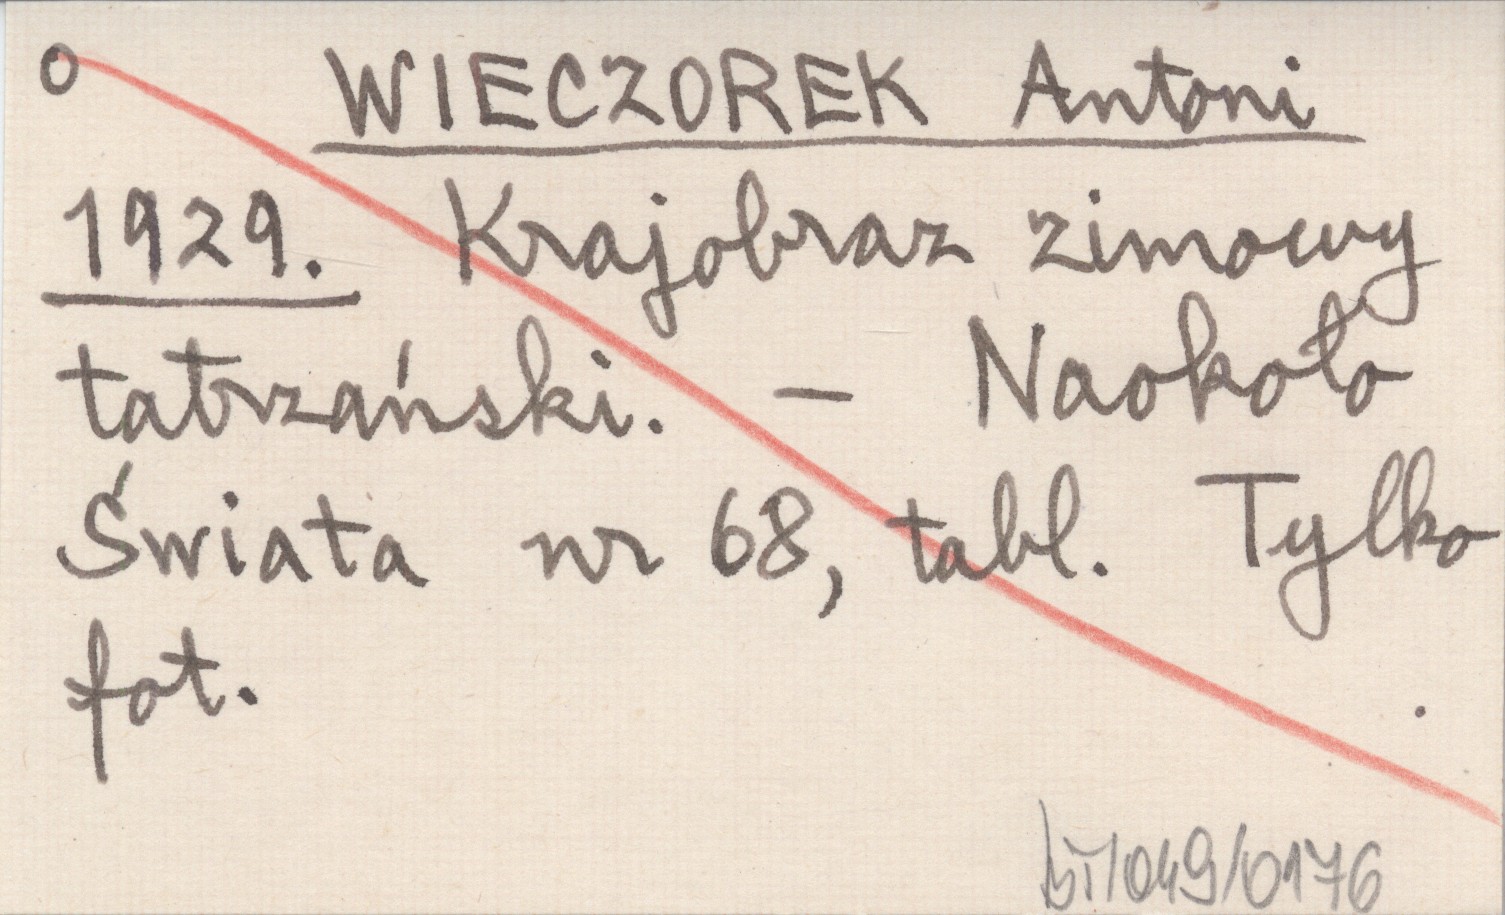 o WIECZOREK Antoni
1929. Krajobraz zimowy
tatrzański. — Naokoło
Świata nr 68, tabl. Tylko
fot.
bī/049/0176